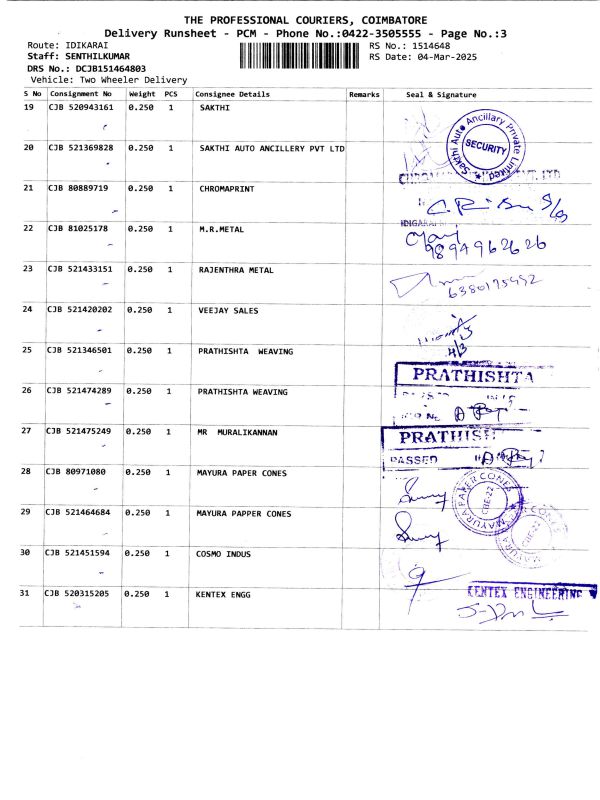 THE PROFESSIONAL COURIERS, COIMBATORE
Delivery Runsheet - PCM - Phone No.:0422-3505555 - Page No.:3
Route: IDIKARAI RS No.: 1514648
Staff: SENTHILKUMAR RS Date: 04-Mar-2025
DRS No.: DCJB151464803
Vehicle: Two Wheeler Delivery
S No Consignment No Weight PCS Consignee Details Remarks Seal & Signature
19 CJB 520943161 0.250 1 SAKTHI
Sakthi Auto Ancillary Private Limited
SECURITY
20 CJB 521369828 0.250 1 SAKTHI AUTO ANCILLERY PVT LTD
PVT. LTD
21 CJB 80889719 0.250 1 CHROMAPRINT
22 CJB 81025178 0.250 1 M.R.METAL
9894962626
23 CJB 521433151 0.250 1 RAJENTHRA METAL
6380175492
24 CJB 521420202 0.250 1 VEEJAY SALES
4/3
25 CJB 521346501 0.250 1 PRATHISHTA WEAVING
PRATHISHTA
26 CJB 521474289 0.250 1 PRATHISHTA WEAVING
27 CJB 521475249 0.250 1 MR MURALIKANNAN
PRATHISH
PASSED
28 CJB 80971080 0.250 1 MAYURA PAPER CONES
MAYURA PAPER CONES
CBE-22
29 CJB 521464684 0.250 1 MAYURA PAPPER CONES
MAYURA CONES
CBE-22
30 CJB 521451594 0.250 1 COSMO INDUS
31 CJB 520315205 0.250 1 KENTEX ENGG
KENTEX ENGINEERING